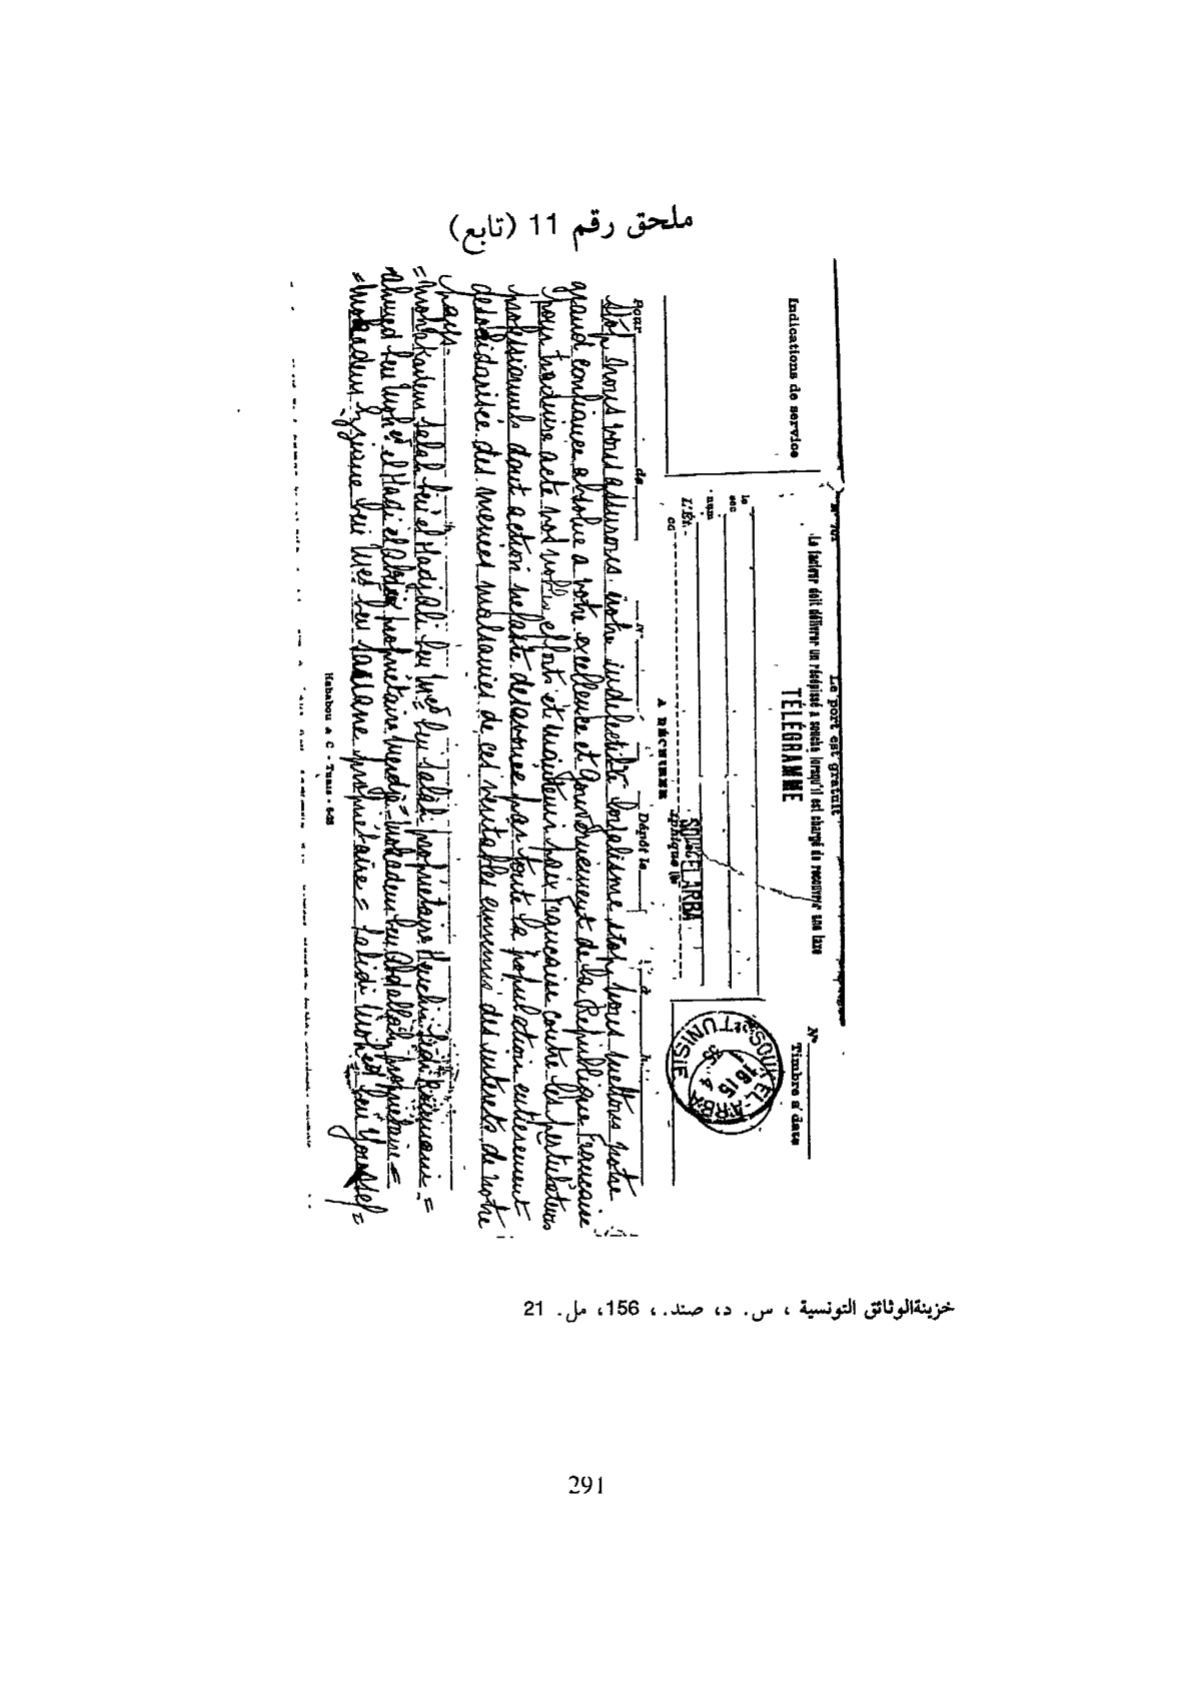 ملحق رقم 11 (تابع)
Indications de service
N° 701
Le port est gratuit
Le facteur doit délivrer un récépissé à souche lorsqu'il est chargé de recouvrer une taxe
TÉLÉGRAMME
N°
Timbre à date
le
sec
num
L'Ét
SOUK EL ARBA
A DÉCHIRER
SOUK-EL-ARBA
TUNISIE
16 15
4
35
Pour de N° Dépôt le à h.
stop nous vous assurons notre indefectible loyalisme stop nous mettons notre
grand confiance absolue a votre excellence et Gouvernement de la Republique Française
pour traduire acte vos nobles efforts et maintenir paix française contre les pertubateurs
professionnels dont action nefaste desavouee par toute la population entierement
desolidarisée des menées malsaines de ces veritables ennemis des interets de notre
pays -
= Mohkadem Salah ben el Hadj Ali ben Med ben Salah propriétaire =
Ahmed ben Mohed el Hadi el propriétaire = Mokadem ben Abdallah propriétaire =
= Mokadem ben Med ben Saslane propriétaire = Labidi Mohed ben Youssef =
Hababou & C - Tunis - 6-28
خزينةالوثائق التونسية ، س. د، صند.، 156، مل. 21
291